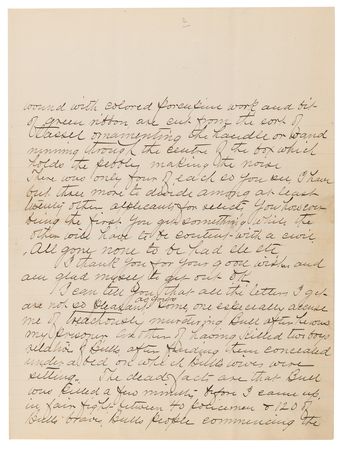 2
wound with colored porcupine work and bit
of green ribbon are cut from the sort of
tassel ornamenting the handle or wand
running through the centre of the box which
holds the pebble, making the noise.
There was only four of each so you see I have
but three more to decide among at least
twenty other applicants for relicts. You however
being the first you get something while the
other will have to be content with a civil,
All gone none to be had etc etc
I thank you for your good wishes and
am glad myself to get out of it.
I can tell you that all the letters I get
are not so pleasant as yours one, one especially accuse
me of treacherously murdering Bull after he was
my prisoner, another of having killed two
relatives of Bulls after finding them concealed
under a bed on which Bulls wives were
sitting. The dead facts are that Bull
was killed a few minutes before I came up,
in fair fight between 40 policemen & 120 of
Bulls braves, Bulls people commencing the